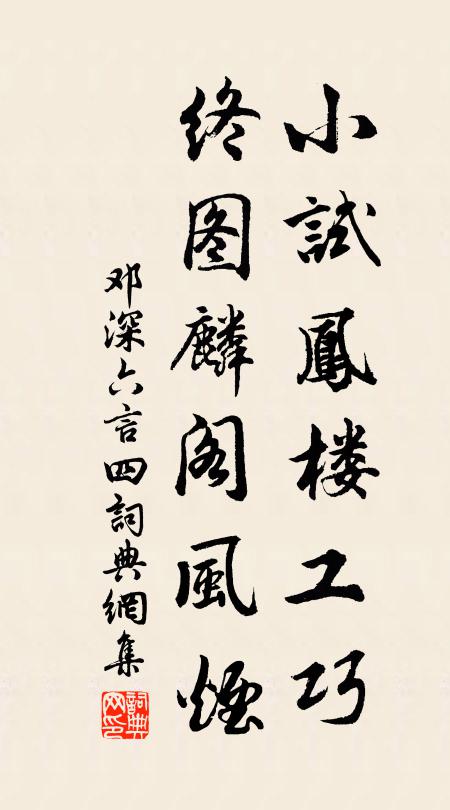 小試鳳楼工巧
终图麟阁風煙
邓深六言四詞典網集
詞典網印